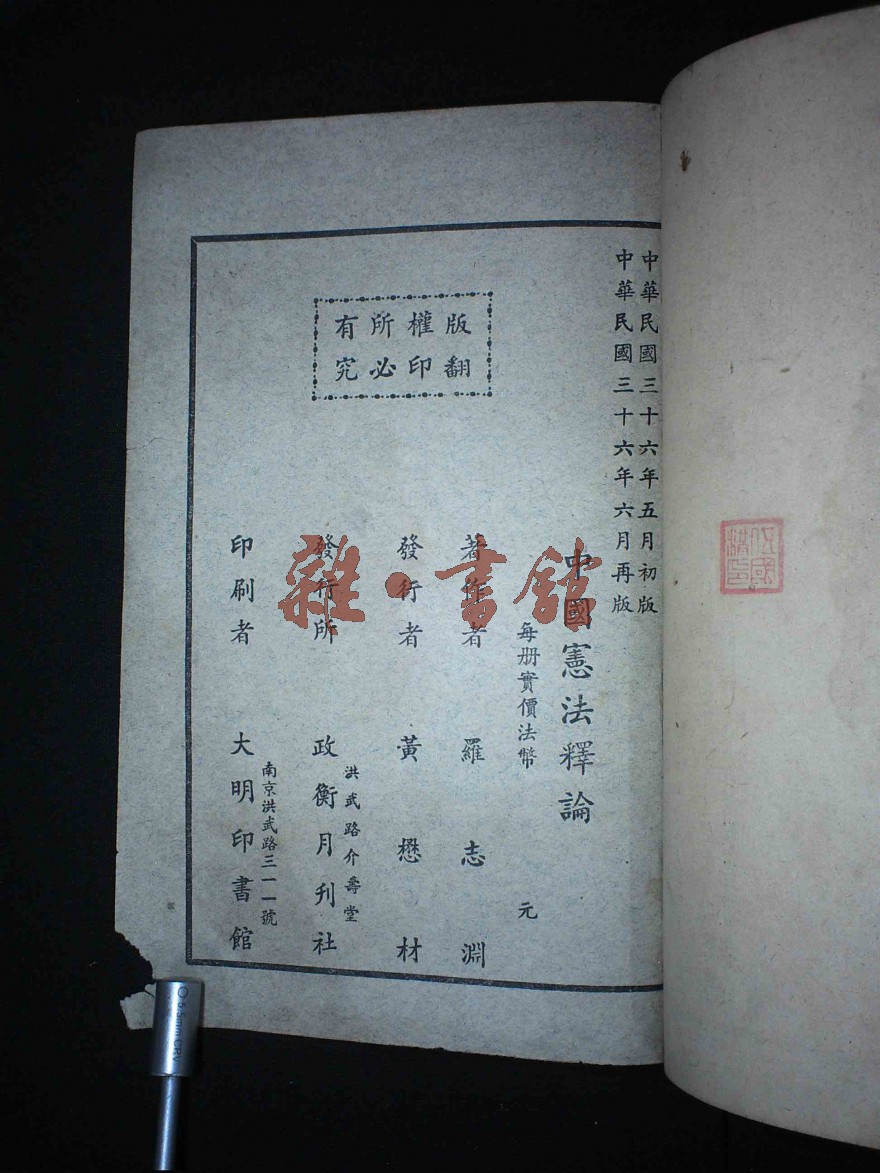 中華民國三十六年五月初版
中華民國三十六年六月再版
中國憲法釋論
每册實價法幣 元
版權所有
翻印必究
著作者 羅志淵
發行者 黃懋材
洪武路介壽堂
發行所 政衡月刊社
南京洪武路三一一號
印刷者 大明印書館
雜·書館
5.5mm CRV